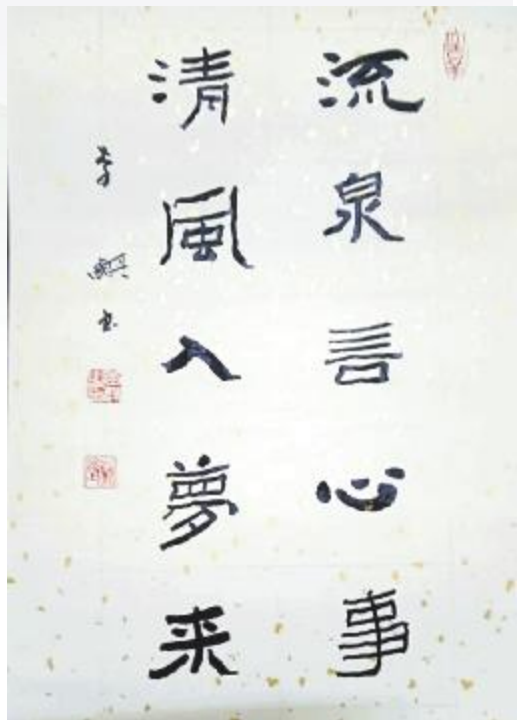 流泉言心事
清風入夢来